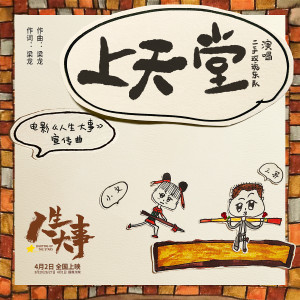 作曲：梁龙
作词：梁龙
上天堂
演唱
二手玫瑰乐队
电影《人生大事》
宣传曲
小文
三哥
人生大事
LIGHTING UP THE STARS
4月2日 全国上映